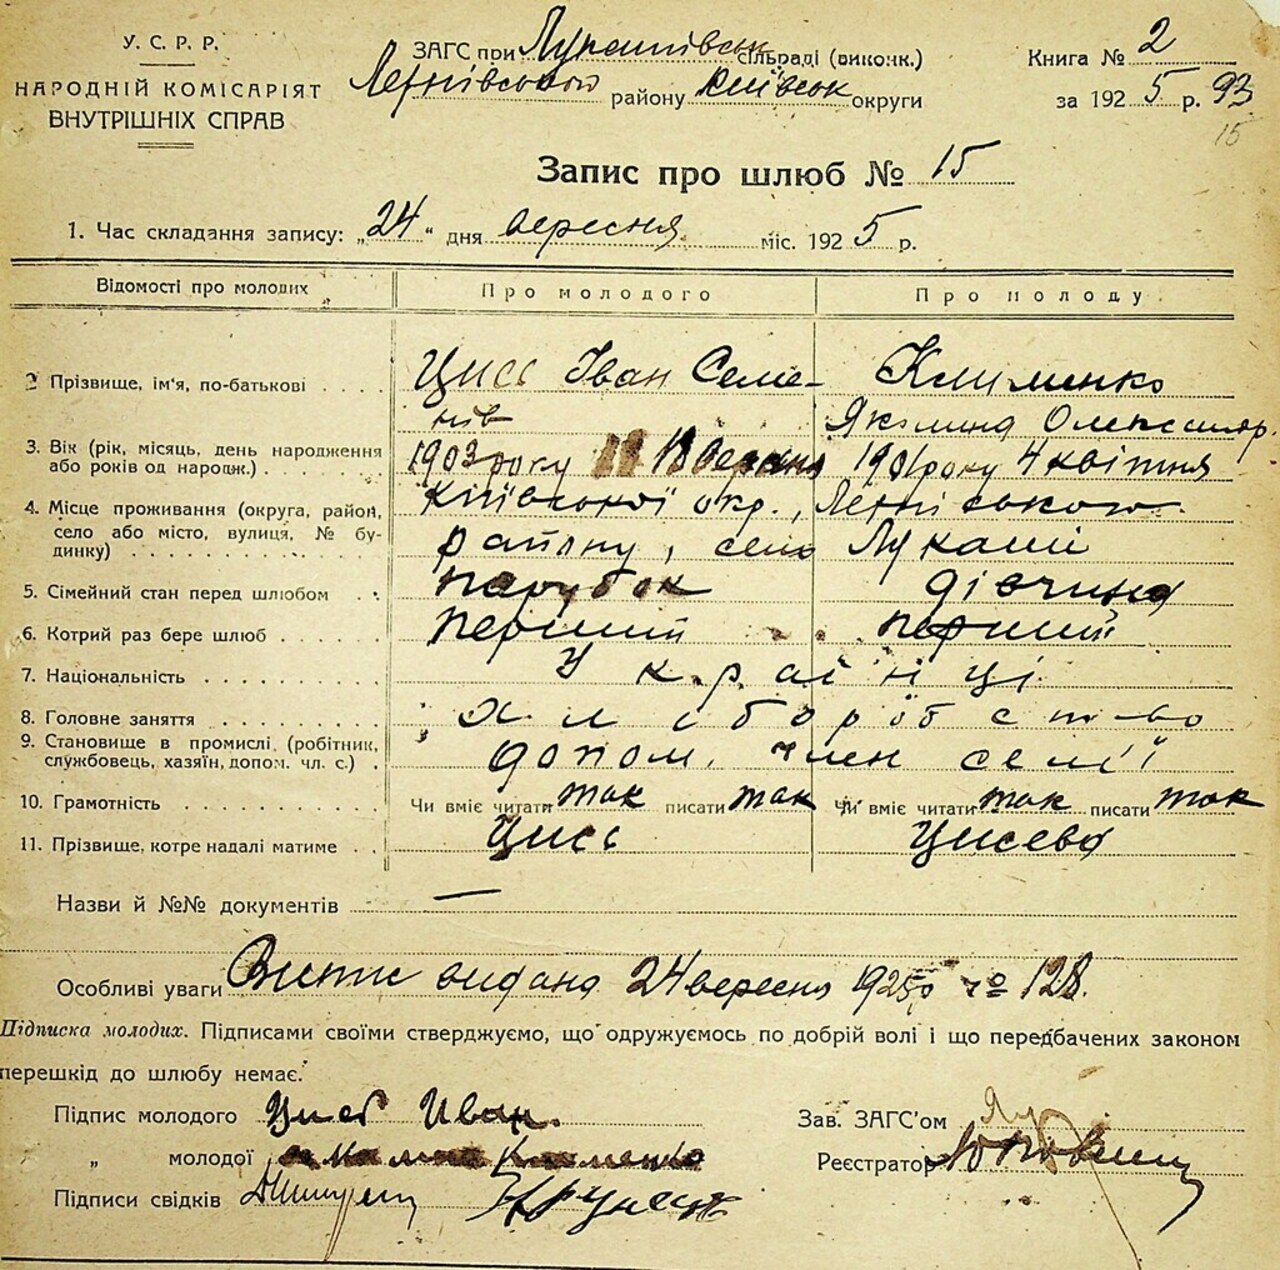 У. С. Р. Р.
НАРОДНІЙ КОМІСАРІЯТ
ВНУТРІШНІХ СПРАВ
ЗАГС при сільраді (виконк.)
району Київськ округи
Книга № 2
за 192 5 р. 93
15
Запис про шлюб № 15
1. Час складання запису: „24“ дня вересня міс. 192 5 р.
Відомості про молодих
Про молодого
Про молоду
2 Прізвище, ім'я, по-батькові . . . . Цись Іван Семе- Клименко
нів Якилина Олександр.
3. Вік (рік, місяць, день народження
або років од народж.) . . . . . 1903 року 18 1901 року 4 квітня
4. Місце проживання (округа, район, Київської окр.,
село або місто, вулиця, № бу-
динку) . . . . . . . . . . . району, село Лукаші
5. Сімейний стан перед шлюбом . . парубок дівчина
6. Котрий раз бере шлюб . . . . . . перший перший
7. Національність . . . . . . . . . Українці
8. Головне заняття . . . . . . . . . хліборобство
9. Становище в промислі, (робітник,
службовець, хазяїн, допом. чл. с.) . допом. член семї
10. Грамотність . . . . . . . . . . . Чи вміє читати так писати так Чи вміє читати так писати так
11. Прізвище, котре надалі матиме . . Цись Цисева
Назви й №№ документів —
Особливі уваги видана 24 вересня 1925 р № 128.
Підписка молодих. Підписами своїми стверджуємо, що одружуємось по добрій волі і що передбачених законом
перешкід до шлюбу немає.
Підпис молодого Цись Иван.
„ молодої Клименко
Підписи свідків
Зав. ЗАГС'ом
Реєстратор